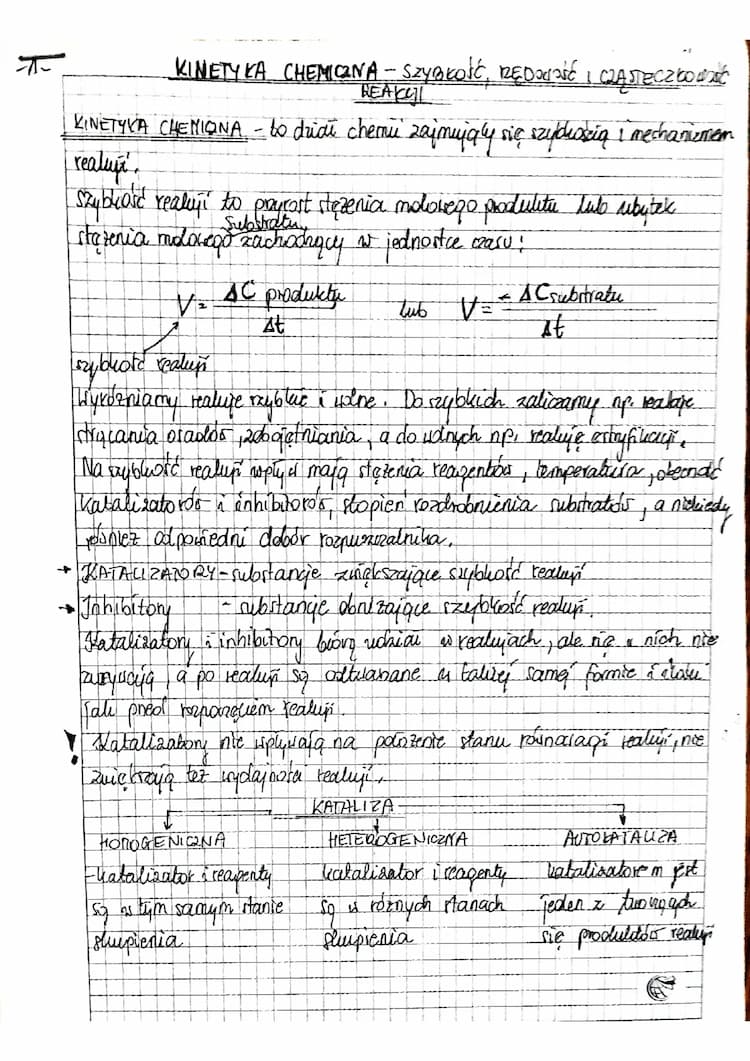 -1-
KINETYKA CHEMICZNA - SZYBKOŚĆ, RZĘDOWOŚĆ I CZĄSTECZKOWOŚĆ
REAKCJI
KINETYKA CHEMICZNA - to dział chemii zajmujący się szybkością i mechanizmem
reakcji.
Szybkość reakcji to przyrost stężenia molowego produktu lub ubytek
substratu
stężenia molowego zachodzący w jednostce czasu:
V = ΔC produktu / Δt lub V = - ΔC substratu / Δt
szybkość reakcji
Wyróżniamy reakcje szybkie i wolne. Do szybkich zaliczamy np. reakcje
strącania osadów, zobojętniania, a do wolnych np. reakcję estryfikacji.
Na szybkość reakcji wpływ mają stężenia reagentów, temperatura, obecność
katalizatorów i inhibitorów, stopień rozdrobnienia substratów, a niekiedy
również odpowiedni dobór rozpuszczalnika.
→ KATALIZATORY - substancje zwiększające szybkość reakcji
→ Inhibitory - substancje obniżające szybkość reakcji.
Katalizatory i inhibitory biorą udział w reakcjach, ale się w nich nie
zużywają, a po reakcji są odtwarzane w takiej samej formie i ilości
jak przed rozpoczęciem reakcji.
! Katalizatory nie wpływają na położenie stanu równowagi reakcji, nie
zwiększają też wydajności reakcji.
KATALIZA
HOMOGENICZNA HETEROGENICZNA AUTOKATALIZA
- katalizator i reagenty katalizator i reagenty katalizatorem jest
są w tym samym stanie są w różnych stanach jeden z tworzących
skupienia skupienia się produktów reakcji